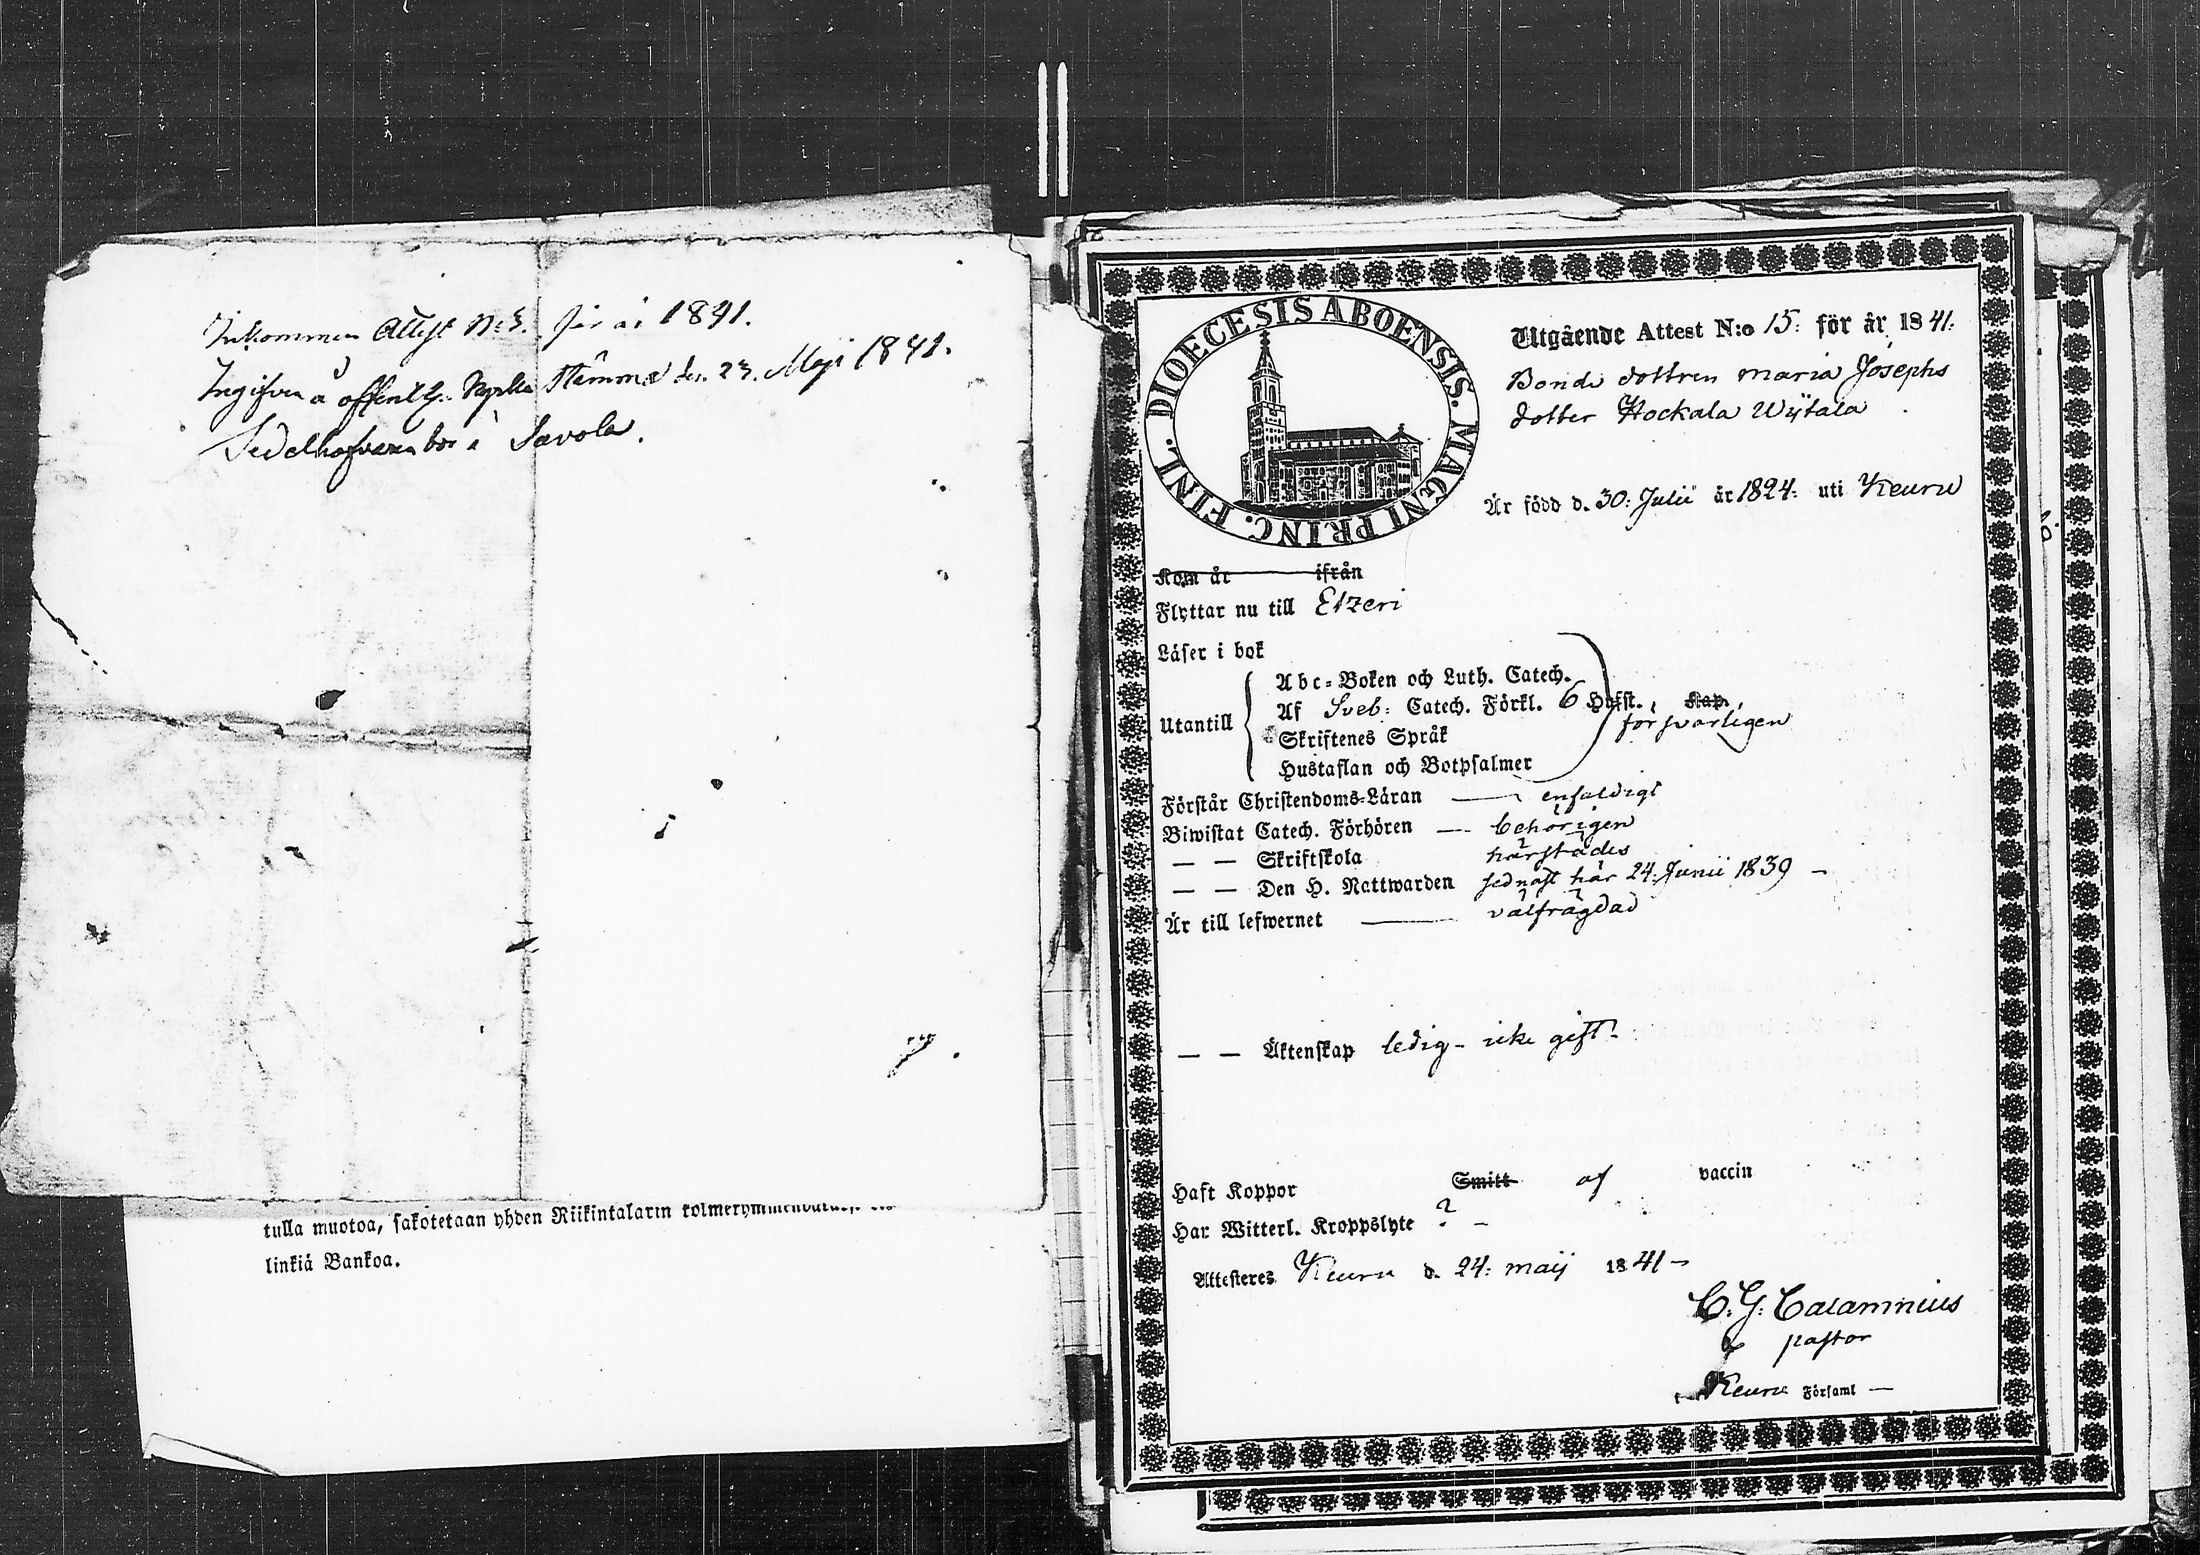 Inkommen Attest N:o 3. för år 1841.
Ingifven å offentl. Kyrko Stämma den 23. Maji 1841.
Sedelhafvaren bor i Savola.
tulla muotoa, sakotetaan yhden Riikintalarin
linkiä Bankoa.
DIOECESIS ABOENSIS. MAGNI PRINC. FINL.
Utgående Attest N:o 15: för år 1841:
Bonde dottren Maria Josephs
dotter Hockala Wÿtala
Är född d. 30: Julii år 1824: uti Keuru
Kom år ifrån
Flyttar nu till Etzeri
Läser i bok
Utantill
Abc-Boken och Luth. Catech.
Af Sveb: Catech. Förkl. 6 Hufst. Kap.
försvarligen
Skriftenes Språk
Hustaflan och Botpsalmer
Förstår Christendoms-Läran — enfaldigt
Biwistat Catech. Förhören — behörigen
— — Skriftskola härstädes
— — Den H. Nattwarden sednast här 24: Junii 1839 —
Är till lefwernet — välfrägdad
— — Äktenskap ledig – icke gift –
Haft Koppor Smitt af vaccin
Har Witterl. Kroppslyte ? –
Attesteres Keuru d. 24: maij 1841 –
C: G: Calamnius
pastor
Keuru Församl —